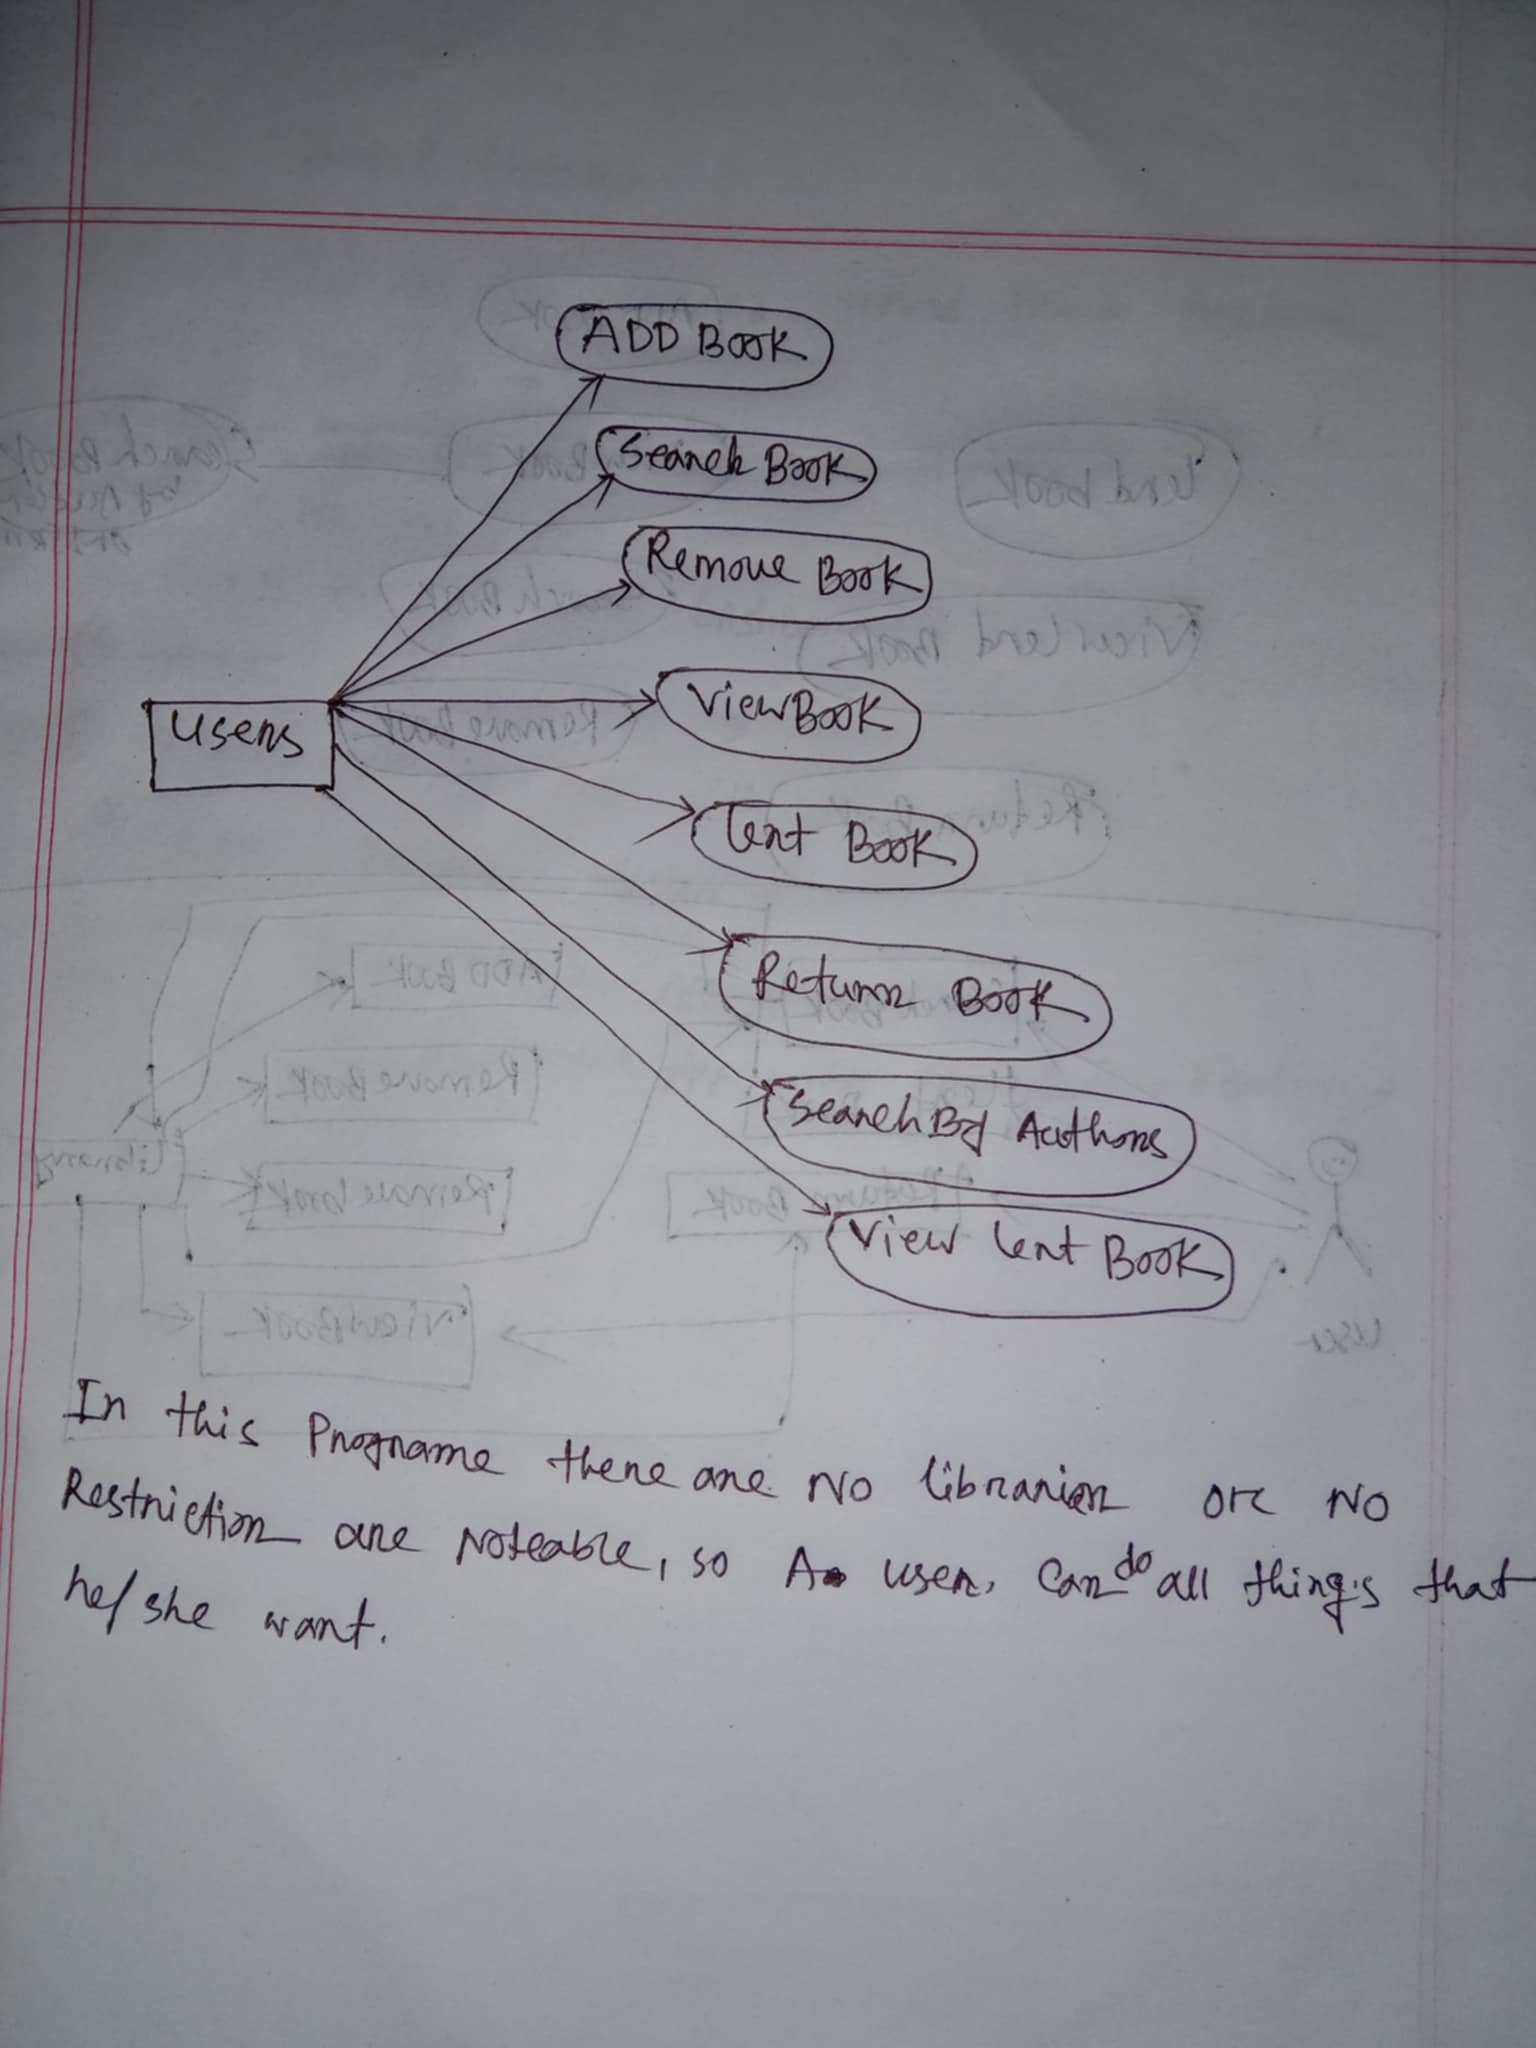 ADD Book
Search Book
Remove Book
View Book
users
lent Book
Return Book
Search By Authors
View lent Book
In this Programe there are No librarian or No
Restriction are Noteable, so A user. Can do all thing's that
he/she want.